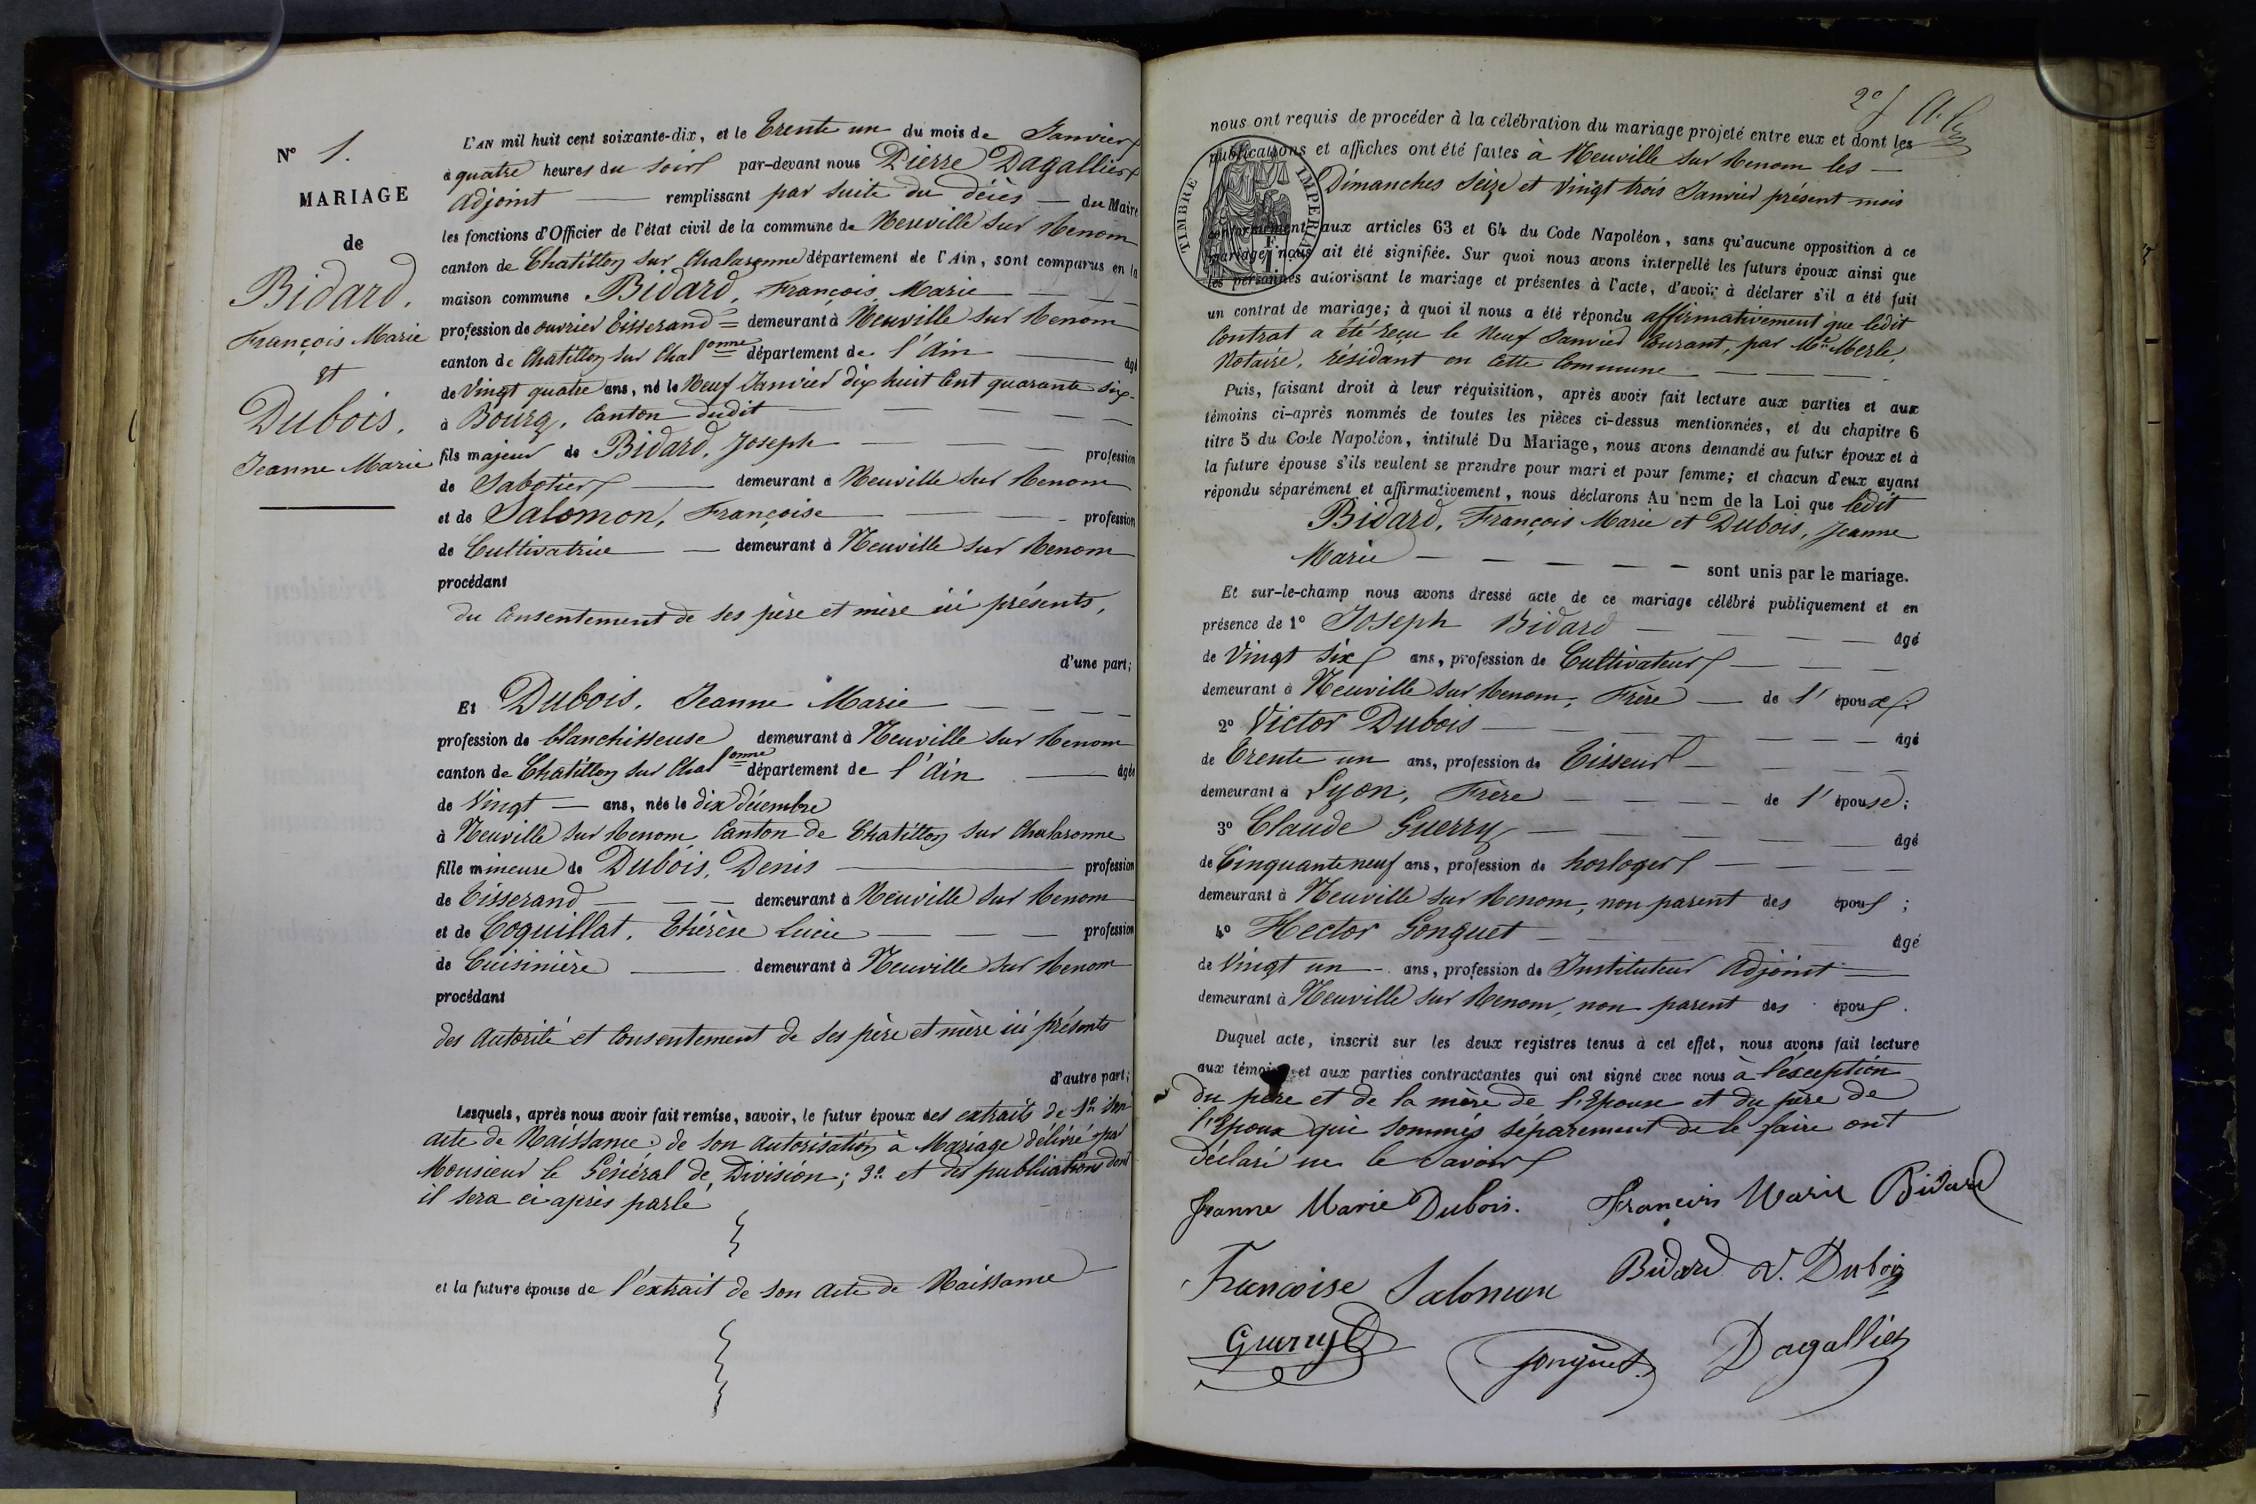 N° 1.
MARIAGE
de
Bidard,
François Marie
et
Dubois,
Jeanne Marie
L'AN mil huit cent soixante-dix, et le Trente un du mois de Janvier
à quatre heures du soir par-devant nous Pierre Dagallier
Adjoint — remplissant par suite du décès — du Maire
les fonctions d'Officier de l'état civil de la commune de Neuville sur Renom
canton de Chatillon sur Chalaronne département de l'Ain, sont comparus en la
maison commune Bidard, François Marie — — —
profession de ouvrier Tisserand = demeurant à Neuville sur Renom
canton de Chatillon sur Chalonne département de l'Ain — âgé
de Vingt quatre ans, né le Neuf Janvier dix huit Cent quarante six
à Bourg, Canton dudit — — — — —
fils majeur de Bidard, Joseph — — — profession
de Sabotier — demeurant à Neuville sur Renom
et de Salomon, Françoise — — — profession
de Cultivatrice — — demeurant à Neuville sur Renom
procédant
du Consentement de ses père et mère ici présents,
d'une part;
Et Dubois, Jeanne Marie — — — —
profession de blanchisseuse demeurant à Neuville sur Renom
canton de Chatillon sur Chalonne département de l'Ain — âgée
de Vingt — ans, née le dix décembre
à Neuville sur Renom, Canton de Chatillon sur Chalaronne
fille mineure de Dubois, Denis — profession
de Tisserand — — — demeurant à Neuville sur Renom
et de Coquillat, Thérèse Lucie — — — profession
de Cuisinière — demeurant à Neuville sur Renom
procédant
des Autorité et Consentement de ses père et mère ici présents
d'autre part;
Lesquels, après nous avoir fait remise, savoir, le futur époux des extraits de 1° son
acte de Naissance de son autorisation à Mariage délivré par
Monsieur le Général de Division; 3° et des publications dont
il sera ci-après parlé
et la future épouse de l'extrait de son acte de Naissance
2e
nous ont requis de procéder à la célébration du mariage projeté entre eux et dont les
publications et affiches ont été faites à Neuville sur Renom les —
Dimanches Seize et Vingt trois Janvier présent mois
TIMBRE IMPERIAL
1 F.
conformément aux articles 63 et 64 du Code Napoléon, sans qu'aucune opposition à ce
mariage nous ait été signifiée. Sur quoi nous avons interpellé les futurs époux ainsi que
les personnes autorisant le mariage et présentes à l'acte, d'avoir à déclarer s'il a été fait
un contrat de mariage; à quoi il nous a été répondu affirmativement que ledit
Contrat a été reçu le Neuf Janvier Courant, par Me Merle,
Notaire, résidant en Cette Commune — — — —
Puis, faisant droit à leur réquisition, après avoir fait lecture aux parties et aux
témoins ci-après nommés de toutes les pièces ci-dessus mentionnées, et du chapitre 6
titre 5 du Code Napoléon, intitulé Du Mariage, nous avons demandé au futur époux et à
la future épouse s'ils veulent se prendre pour mari et pour femme; et chacun d'eux ayant
répondu séparément et affirmativement, nous déclarons Au nom de la Loi que ledit
Bidard, François Marie et Dubois, Jeanne
Marie — — — — — sont unis par le mariage.
Et sur-le-champ nous avons dressé acte de ce mariage célébré publiquement et en
présence de 1° Joseph Bidard — — — — âgé
de Vingt Six ans, profession de Cultivateur — — —
demeurant à Neuville sur Renom, Frère — de l'époux;
2° Victor Dubois — — — — — âgé
de Trente un ans, profession de Tisseur — — —
demeurant à Lyon, Frère — — — — de l'épouse;
3° Claude Guerry — — — — — âgé
de Cinquante neuf ans, profession de horloger — — —
demeurant à Neuville sur Renom, non parent des époux;
4° Hector Gonguet — — — — âgé
de Vingt un — ans, profession de Instituteur Adjoint —
demeurant à Neuville sur Renom, non parent des époux.
Duquel acte, inscrit sur les deux registres tenus à cet effet, nous avons fait lecture
aux témoins et aux parties contractantes qui ont signé avec nous à l'exception
du père et de la mère de l'Epouse et du père de
l'Epoux qui sommés séparement de le faire ont
déclaré ne le savoir
Jeanne Marie Dubois. François Marie Bidard
Francoise Salomon Bidard V. Dubois
Guerry Gonguet Dagallier